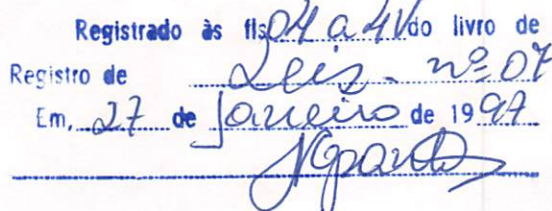 Registrado às fls 04 a 4V do livro de
Registro de Leis - nº 07
Em, 27 de Janeiro de 1997